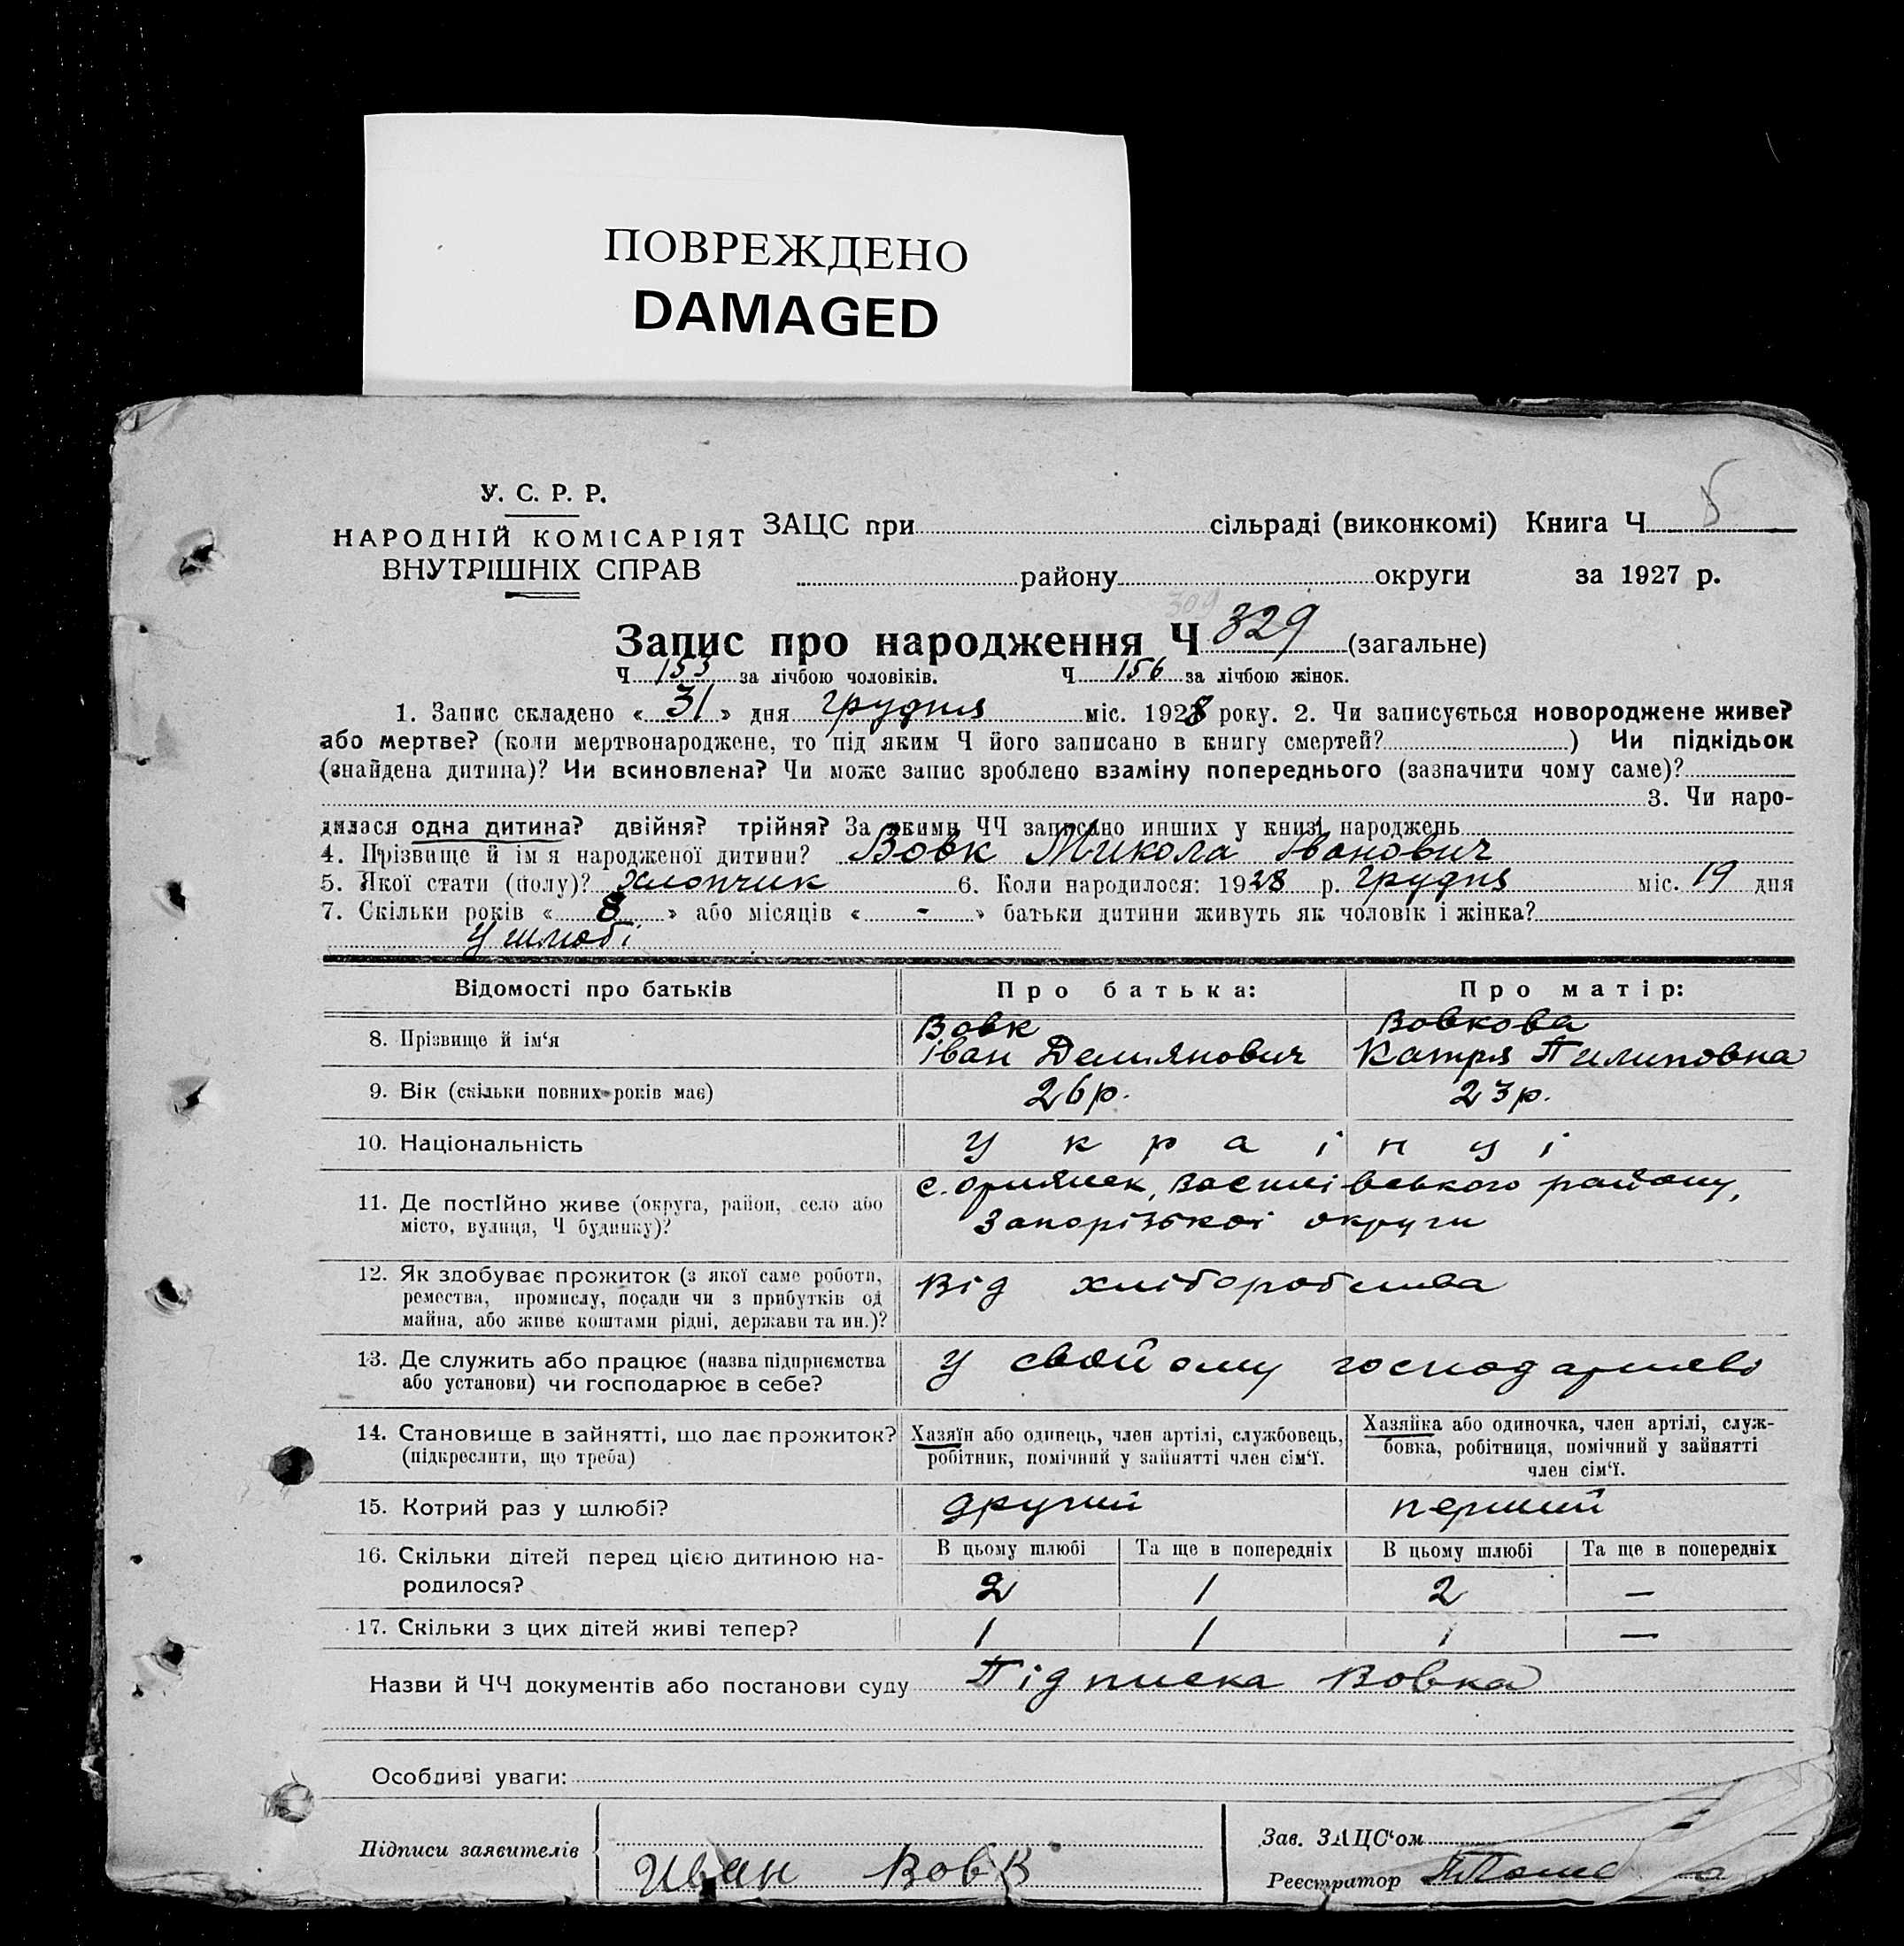 ПОВРЕЖДЕНО
DAMAGED
У. С. Р. Р.
НАРОДНІЙ КОМІСАРІЯТ
ВНУТРІШНІХ СПРАВ
ЗАЦС при сільраді (виконкомі) Книга Ч 5
району округи за 1927 р.
309
Запис про народження Ч 329 (загальне)
Ч 153 за лічбою чоловіків. Ч 156 за лічбою жінок.
1. Запис складено « 31 » дня грудня міс. 1928 року. 2. Чи записується новороджене живе?
або мертве? (коли мертвонароджене, то під яким Ч його записано в книгу смертей? ) Чи підкідьок
(знайдена дитина)? Чи всиновлена? Чи може запис зроблено взаміну попереднього (зазначити чому саме)?
3. Чи наро-
дилася одна дитина? двійня? трійня? За якими ЧЧ записано инших у книзі народжень
4. Прізвище й ім'я народженої дитини? Вовк Микола Іванович
5. Якої стати (полу)? Хлопчик 6. Коли народилося: 1928 р. грудня міс. 19 дня
7. Скільки років « 8 » або місяців « - » батьки дитини живуть як чоловік і жінка?
У шлюбі
Відомості про батьків Про батька: Про матір:
8. Прізвище й ім'я Вовк Іван Демянович Вовкова Катря Пилиповна
9. Вік (скільки повних років має) 26 р. 23 р.
10. Національність Українці
11. Де постійно живе (округа, район, село або
місто, вулиця, Ч будинку)?
с. Орлянськ, Василівського району,
Запорізької округи
12. Як здобуває прожиток (з якої саме роботи,
ремества, промислу, посади чи з прибутків од
майна, або живе коштами рідні, держави та ин.)?
Від хліборобства
13. Де служить або працює (назва підприємства
або установи) чи господарює в себе?
У свойому господарстві
14. Становище в зайнятті, що дає прожиток?
(підкреслити, що треба)
Хазяїн або одинець, член артілі, службовець,
робітник, помічний у зайнятті член сім'ї.
Хазяйка або одиночка, член артілі, служ-
бовка, робітниця, помічний у зайнятті
член сім'ї.
15. Котрий раз у шлюбі? другий перший
16. Скільки дітей перед цією дитиною на-
родилося?
В цьому шлюбі Та ще в попередніх В цьому шлюбі Та ще в попередніх
2 1 2 —
17. Скільки з цих дітей живі тепер? 1 1 1 —
Назви й ЧЧ документів або постанови суду Підписка Вовка
Особливі уваги:
Підписи заявителів
Иван Вовк
Зав. ЗАЦС'ом
Реєстратор